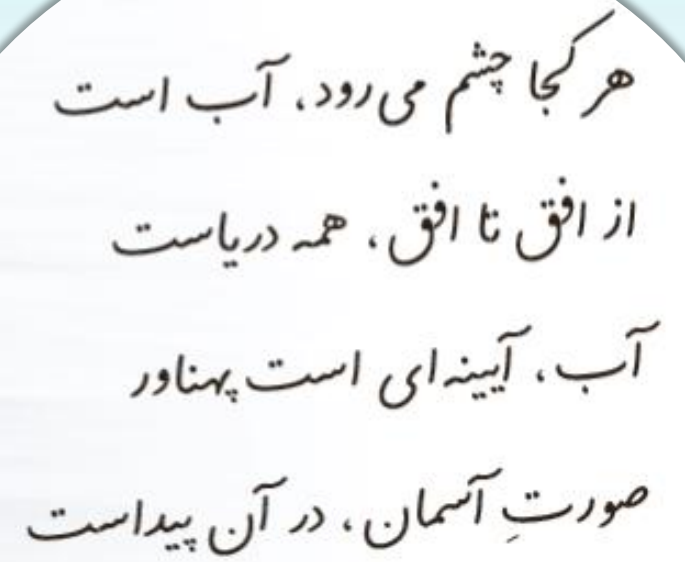 هر کجا چشم می‌رود، آب است
از افق تا افق، همه دریاست
آب، آیینه‌ای است پهناور
صورتِ آسمان، در آن پیداست